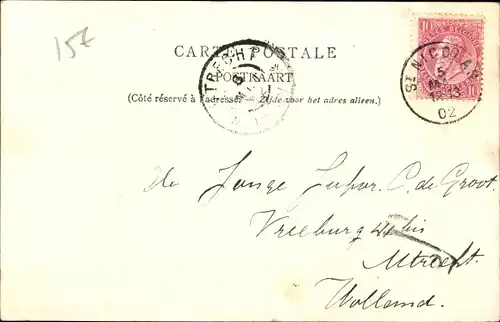 15E
CARTE POSTALE
POSTKAART
(Côté réservé à l'adresse.) Zijde voor het adres alleen.)
UTRECHT
10 10
ST NICOLAS
5
12-13
02
De Jonge C. de Groot.
Vreeburg bis
Utrecht.
Holland.